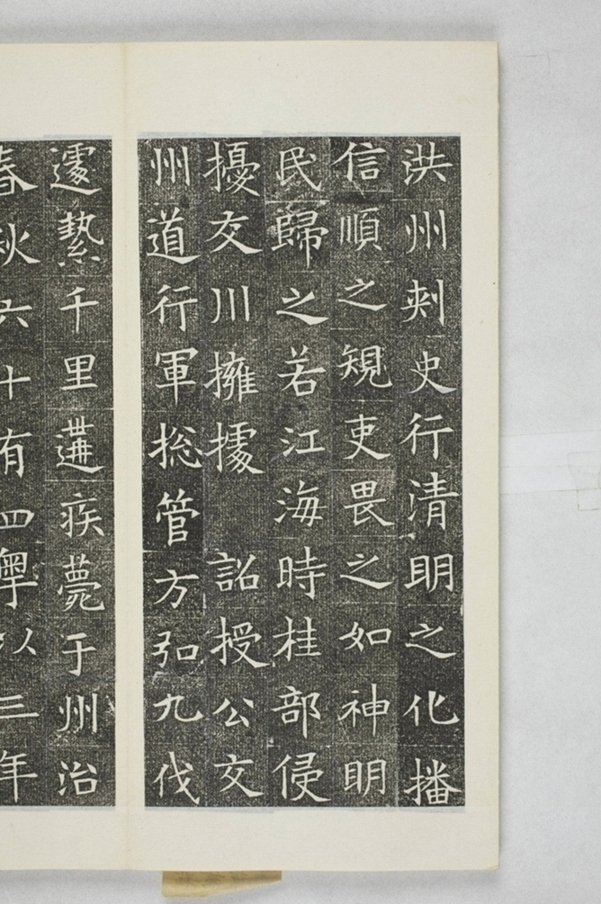 洪州刾史行清明之化播
信順之䂓吏畏之如神明
民歸之若江海時桂部侵
擾交川擁據 詔授公交
州道行軍捴管方弘九伐
遽縶千里遘疾薨于州治
春秋六十有四粤以三年